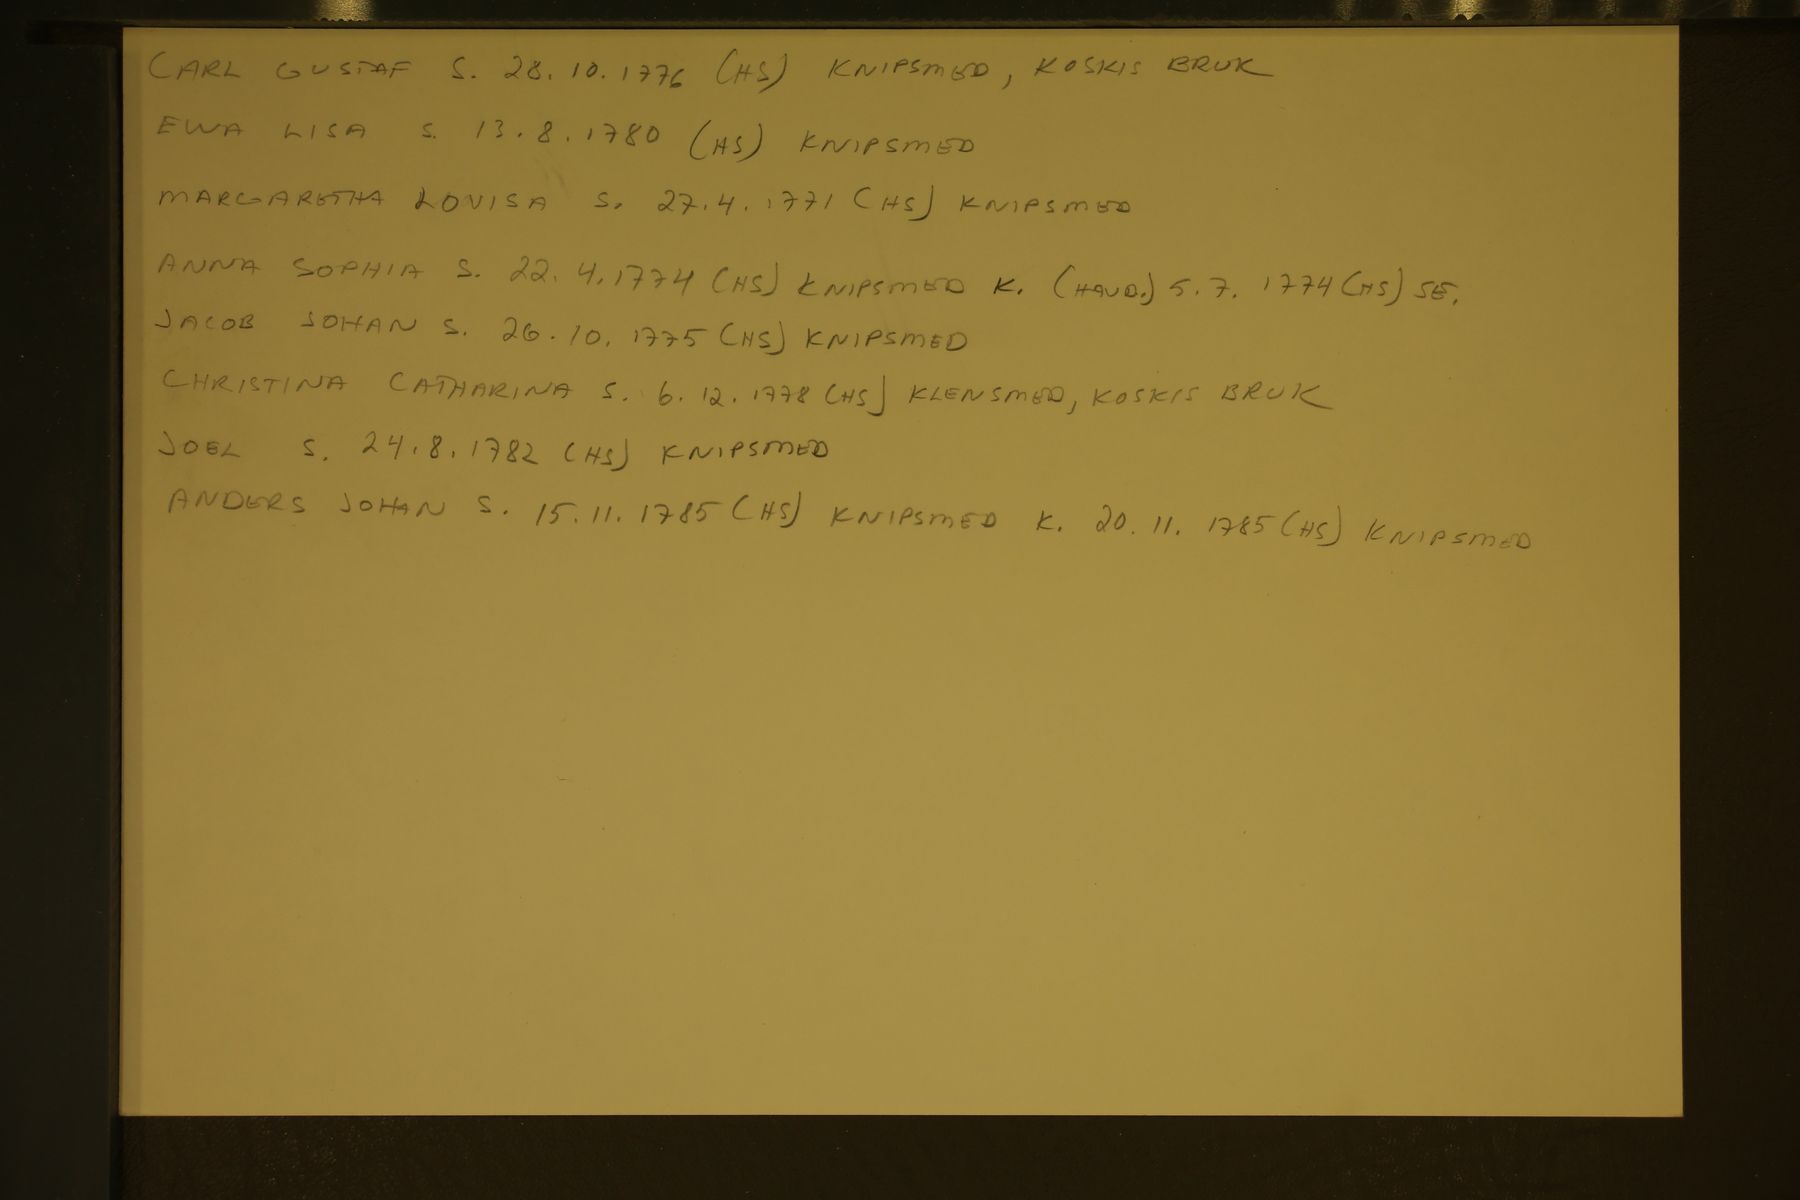 CARL GUSTAF S. 28.10.1776 (HS) KNIPSMED, KOSKIS BRUK
EWA LISA S. 13.8.1780 (HS) KNIPSMED
MARGARETHA LOVISA S. 27.4.1771 (HS) KNIPSMED
ANNA SOPHIA S. 22.4.1774 (HS) KNIPSMED K. (HAUD.) 5.7.1774 (HS) SE.
JACOB JOHAN S. 26.10.1775 (HS) KNIPSMED
CHRISTINA CATHARINA S. 6.12.1778 (HS) KLENSMED, KOSKIS BRUK
JOEL S. 24.8.1782 (HS) KNIPSMED
ANDERS JOHAN S. 15.11.1785 (HS) KNIPSMED K. 20.11.1785 (HS) KNIPSMED